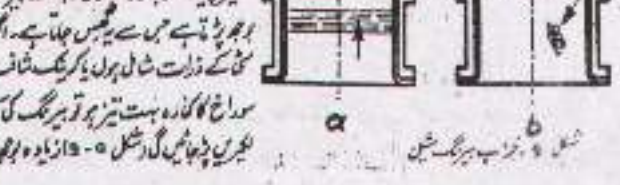 بوجھ پڑتا ہے جس سے یہ گھس جاتا ہے۔
کٹائی کے ذرات شامل ہوں یا کرینک شاف
سوراخ کا کنارہ بہت تیز ہو تو بیرنگ کی
لکیریں پڑ جائیں گی (شکل a-9) زیادہ بوجھ
a
b
شکل 9 خراب بیرنگ شیل